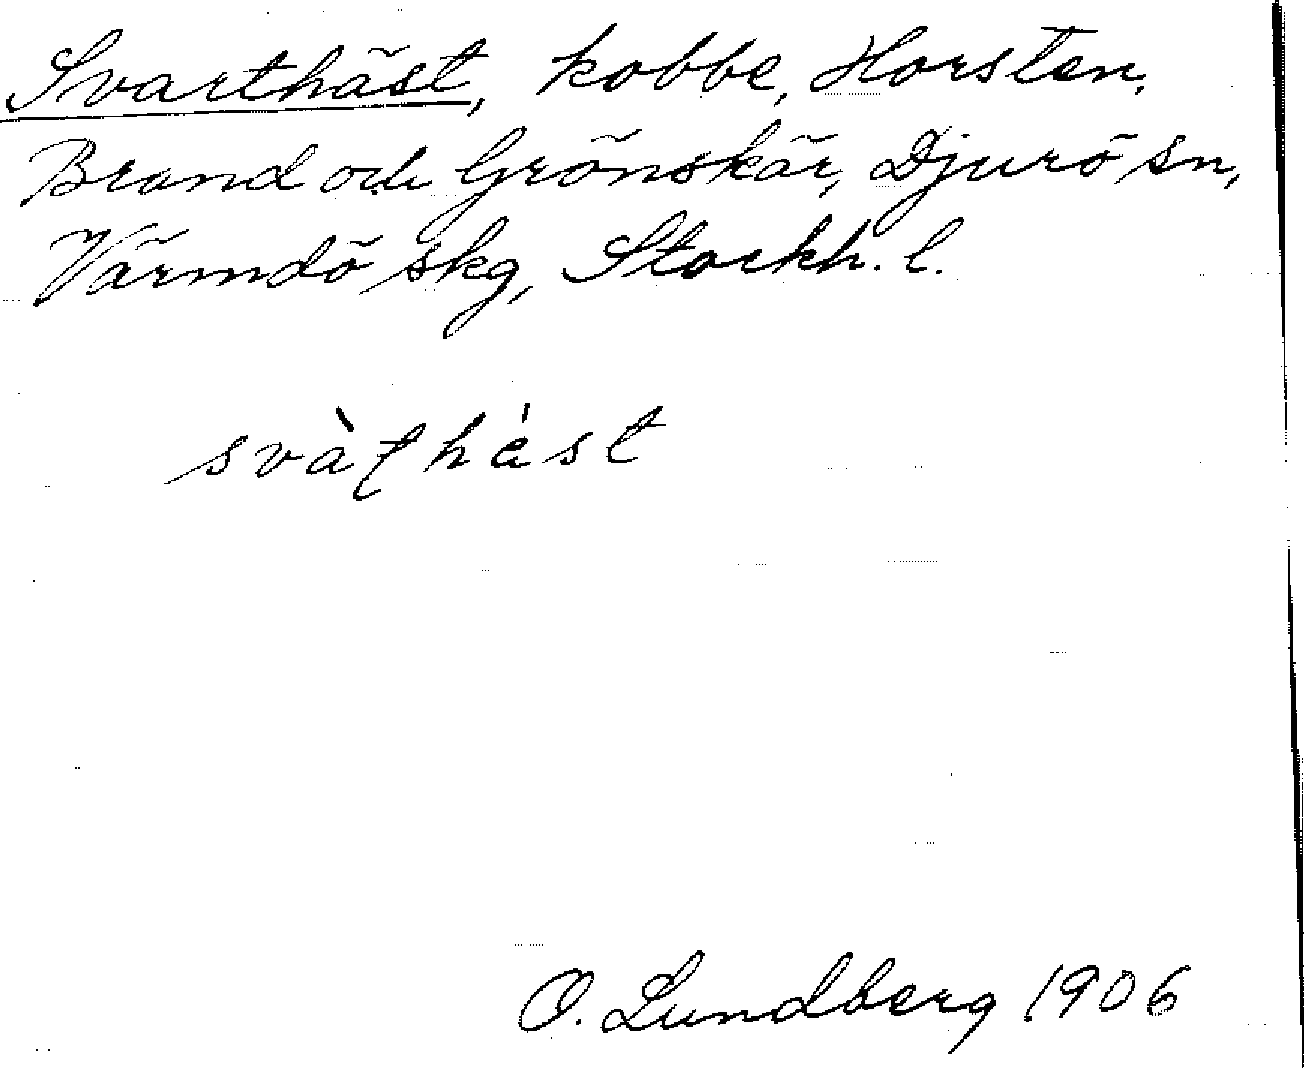 Svarthäst, kobbe, Horsten,
Brand och Grönskär, Djurö sn,
Värmdö skg, Stockh. l.
svàƭhást
O. Lundberg 1906